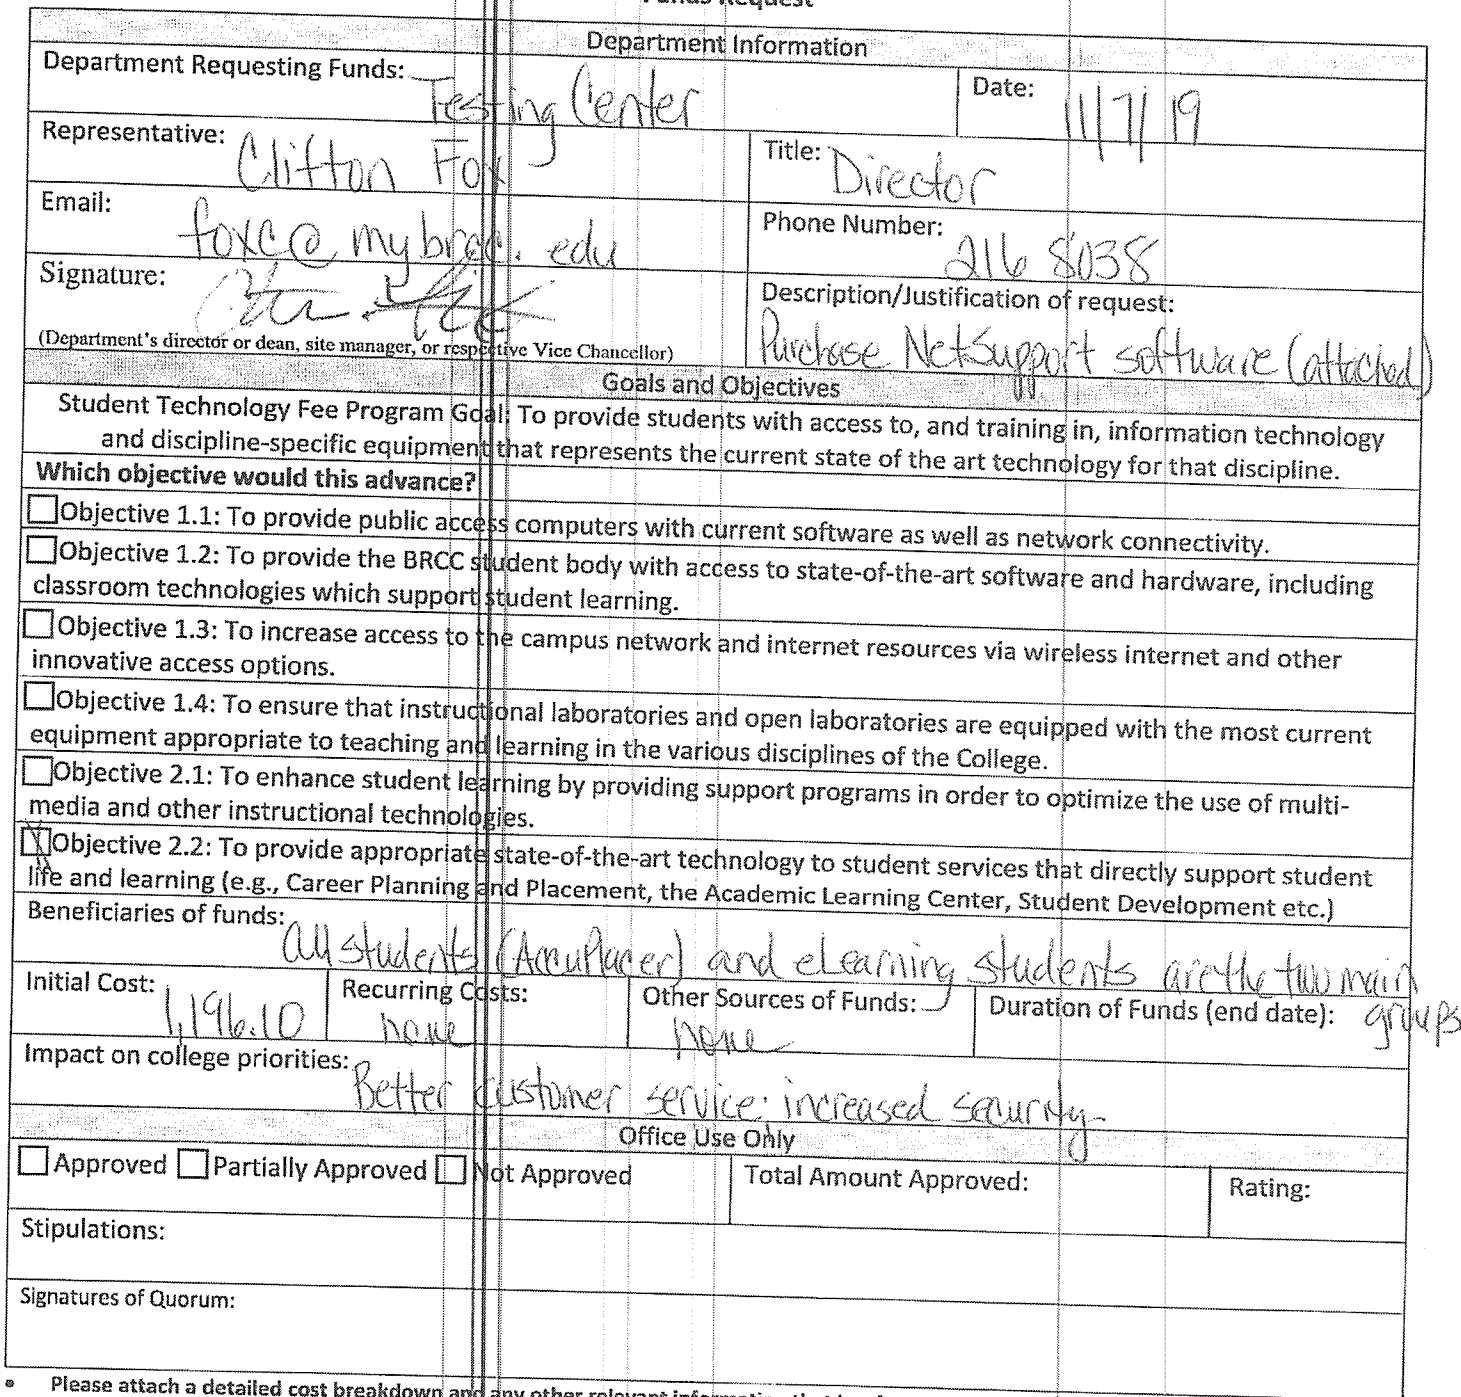 Funds Request
Department Information
Department Requesting Funds: Testing Center
Date: 11/7/19
Representative: Clifton Fox
Title: Director
Email: foxc@mybrcc.edu
Phone Number: 216 8038
Signature:
(Department's director or dean, site manager, or respective Vice Chancellor)
Description/Justification of request:
Purchase NetSupport software (attached)
Goals and Objectives
Student Technology Fee Program Goal: To provide students with access to, and training in, information technology
and discipline-specific equipment that represents the current state of the art technology for that discipline.
Which objective would this advance?
Objective 1.1: To provide public access computers with current software as well as network connectivity.
Objective 1.2: To provide the BRCC student body with access to state-of-the-art software and hardware, including
classroom technologies which support student learning.
Objective 1.3: To increase access to the campus network and internet resources via wireless internet and other
innovative access options.
Objective 1.4: To ensure that instructional laboratories and open laboratories are equipped with the most current
equipment appropriate to teaching and learning in the various disciplines of the College.
Objective 2.1: To enhance student learning by providing support programs in order to optimize the use of multi-
media and other instructional technologies.
X Objective 2.2: To provide appropriate state-of-the-art technology to student services that directly support student
life and learning (e.g., Career Planning and Placement, the Academic Learning Center, Student Development etc.)
Beneficiaries of funds: All students (AccuPlacer) and eLearning students are the two main
groups
Initial Cost: 1,196.10
Recurring Costs: none
Other Sources of Funds: none
Duration of Funds (end date):
Impact on college priorities: Better customer service; increased security
Office Use Only
Approved Partially Approved Not Approved
Total Amount Approved:
Rating:
Stipulations:
Signatures of Quorum:
• Please attach a detailed cost breakdown and any other relevant information that